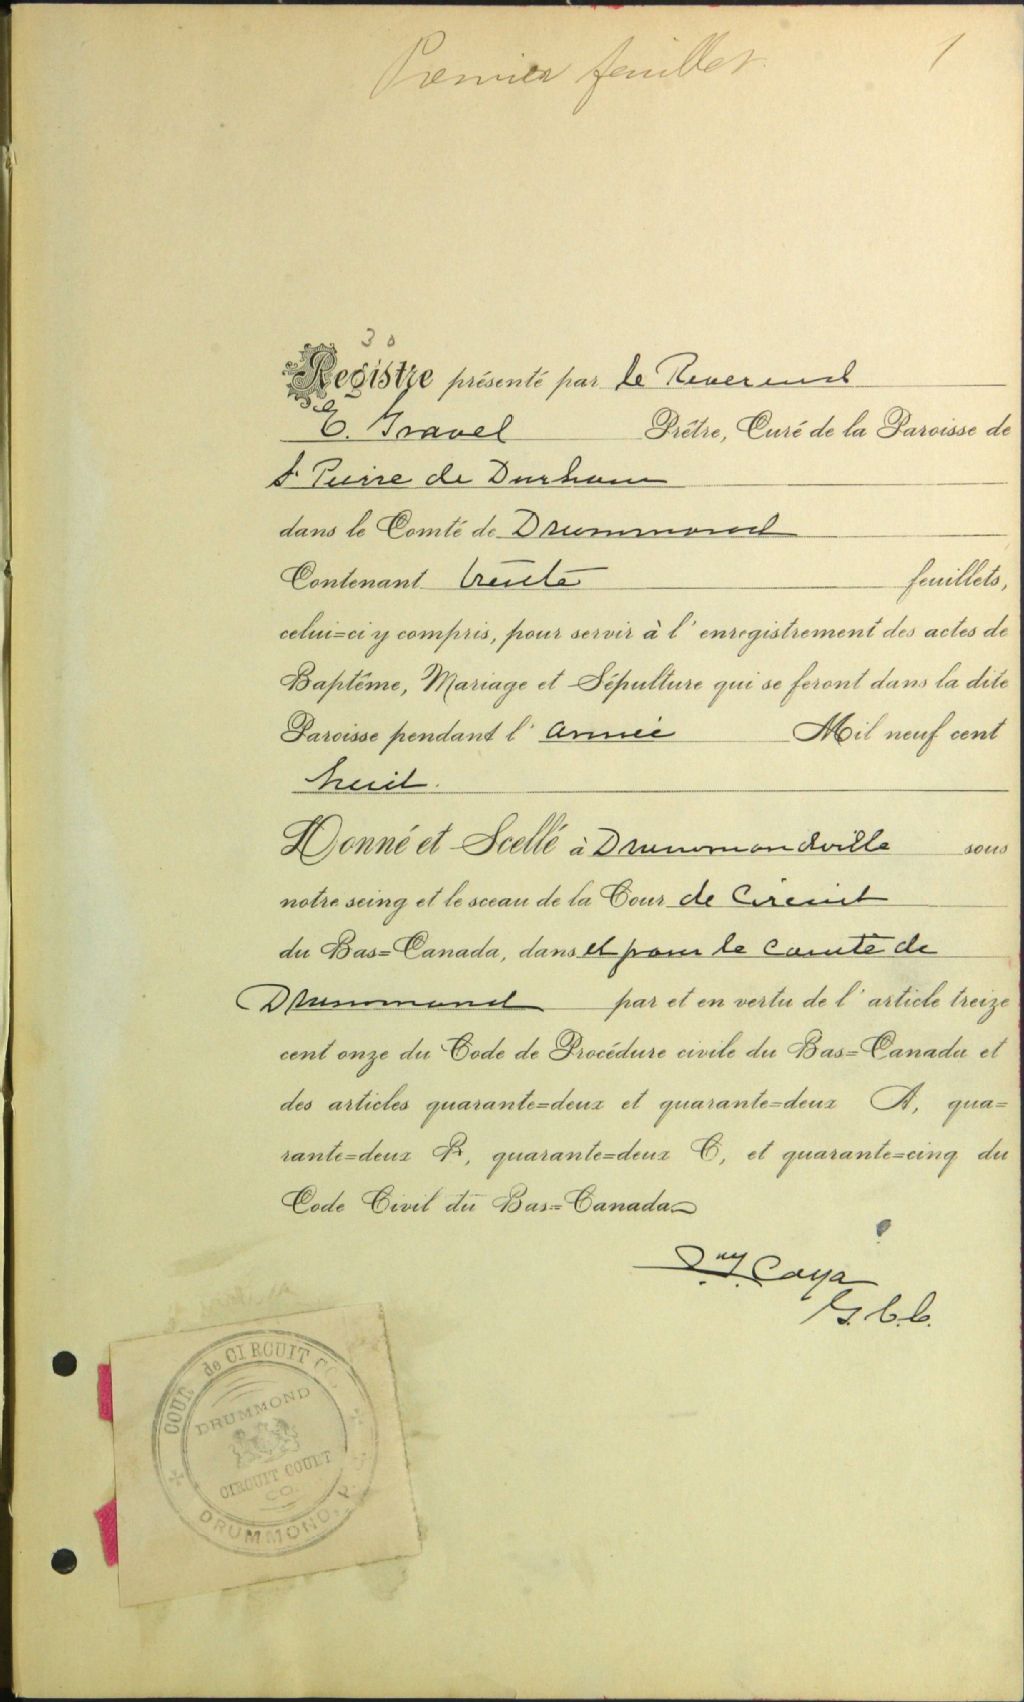 Premier feuillet.
1
30
Registre présenté par le Reverend
E. Gravel Prêtre, Curé de la Paroisse de
St Pierre de Durham
dans le Comté de Drummond
Contenant trente feuillets,
celui=ci y compris, pour servir à l'enregistrement des actes de
Baptême, Mariage et Sépulture qui se feront dans la dite
Paroisse pendant l'année Mil neuf cent
huit.
Donné et Scellé à Drummondville sous
notre seing et le sceau de la Cour de Circuit
du Bas=Canada, dans et pour le comté de
Drummond par et en vertu de l'article treize
cent onze du Code de Procédure civile du Bas=Canada et
des articles quarante=deux et quarante=deux A, qua=
rante=deux B, quarante=deux C, et quarante=cinq du
Code Civil du Bas=Canada
Caya
G.C.C.
COUR de CIRCUIT CO.
DRUMMOND
CIRCUIT COURT
CO.
DRUMMOND, P.